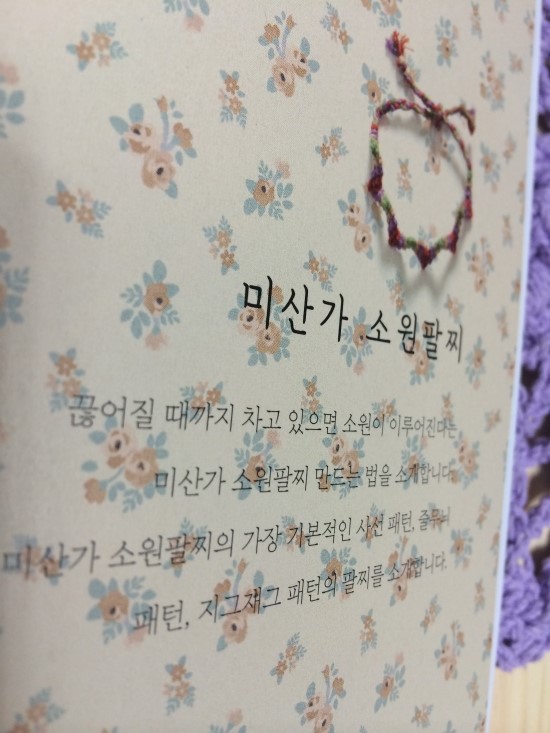 미산가 소원팔찌
끊어질 때까지 차고 있으면 소원이 이루어진다는
미산가 소원팔찌 만드는 법을 소개합니다.
미산가 소원팔찌의 가장 기본적인 사선 패턴, 줄무늬
패턴, 지그재그 패턴의 팔찌를 소개합니다.